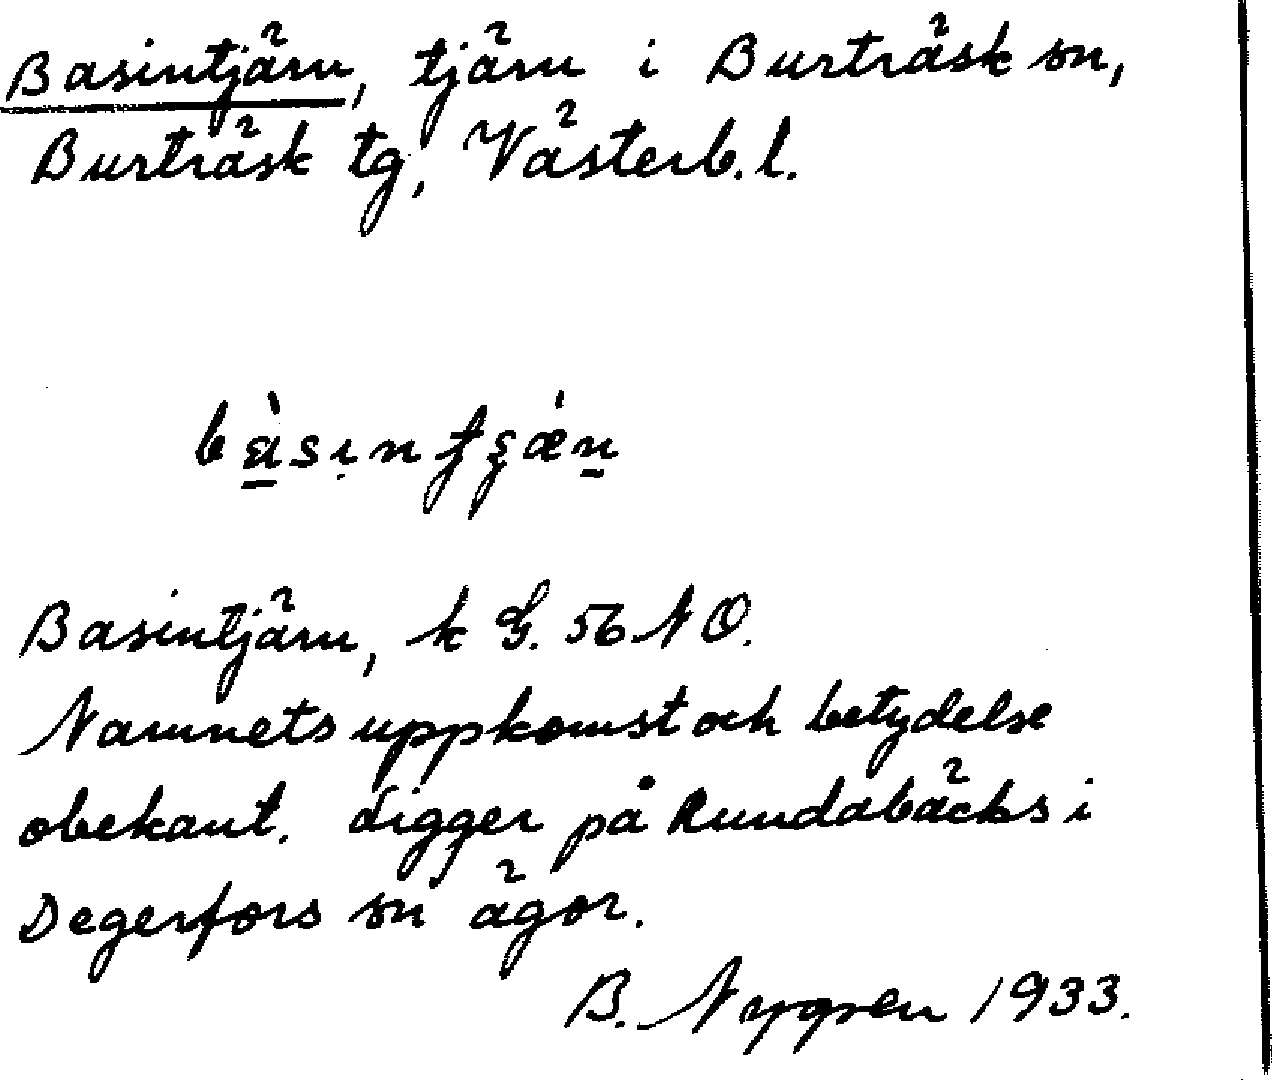 Basintjärn, tjärn i Burträsk sn,
Burträsk tg, Västerb. l.
Basintjärn, k G. 56 N O.
Namnets uppkomst och betydelse
obekant. Ligger på Rundabäcks i
Degerfors sn ägor.
B. Nygren 1933.